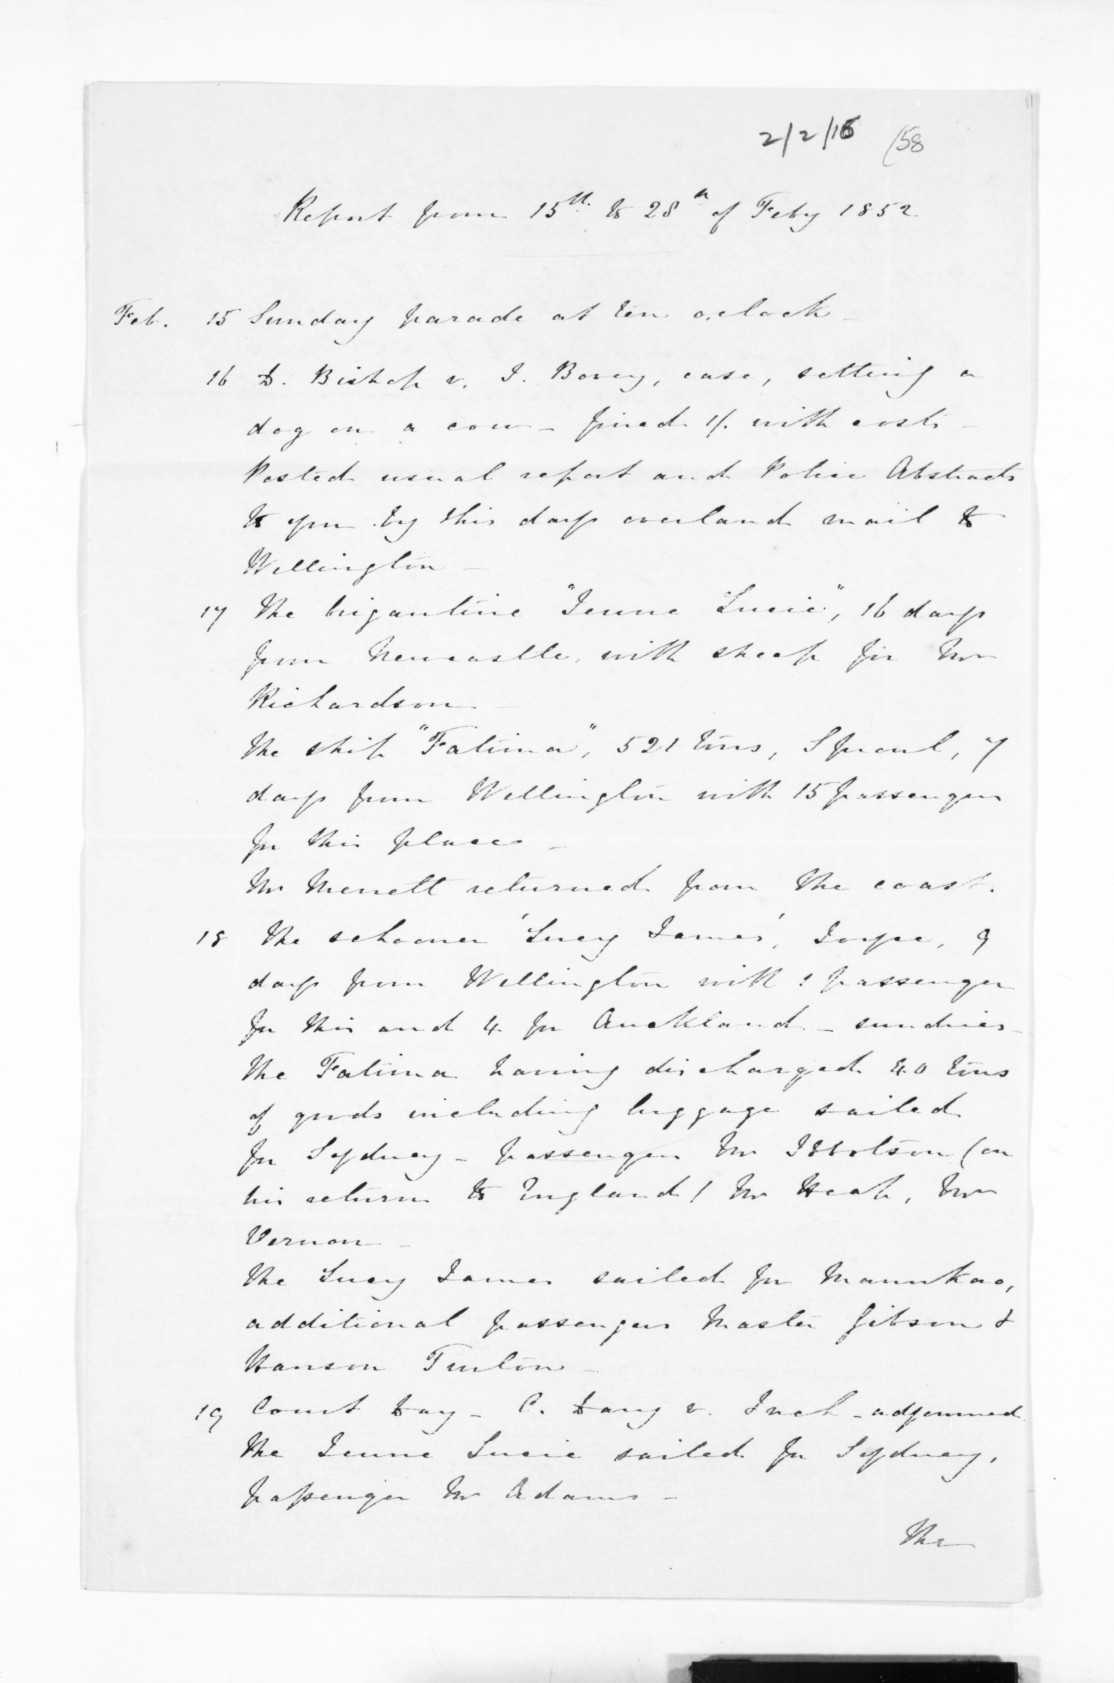 2/2/16 (58
Report from 15th to 28th of Feby 1852
Feb. 15 Sunday parade at ten o,clock _
16 D. Bishop v. I. Bovey, case, setting a
dog on a cow _ fined 1/. with costs _
Posted usual report and Police Abstracts
to you by this days overland mail to
Wellington _
17 The brigantine "Jeune Lucie", 16 days
from Newcastle, with sheep for Mr
Richardson _
The ship "Fatima", 521 tons, Sproul, 7
days from Wellington with 15 passengers
for this place _
Mr Merrett returned from the coast.
18 The schooner 'Lucy James', 9
days from Wellington with 1 passenger
for this and 4 for Auckland _ sundries _
The Fatima having discharged 40 tons
of goods including luggage sailed
for Sydney _ passengers Mr Ibbotson (on
his return to England) Mr Mr
Vernon _
The Lucy James sailed for Manukao,
additional passengers Master Gibson &
Hanson Turton _
19 Court Day _ C. Davy v. Inch _ adjourned.
The Jeune Lucie sailed for Sydney,
passenger Mr Adams _
The